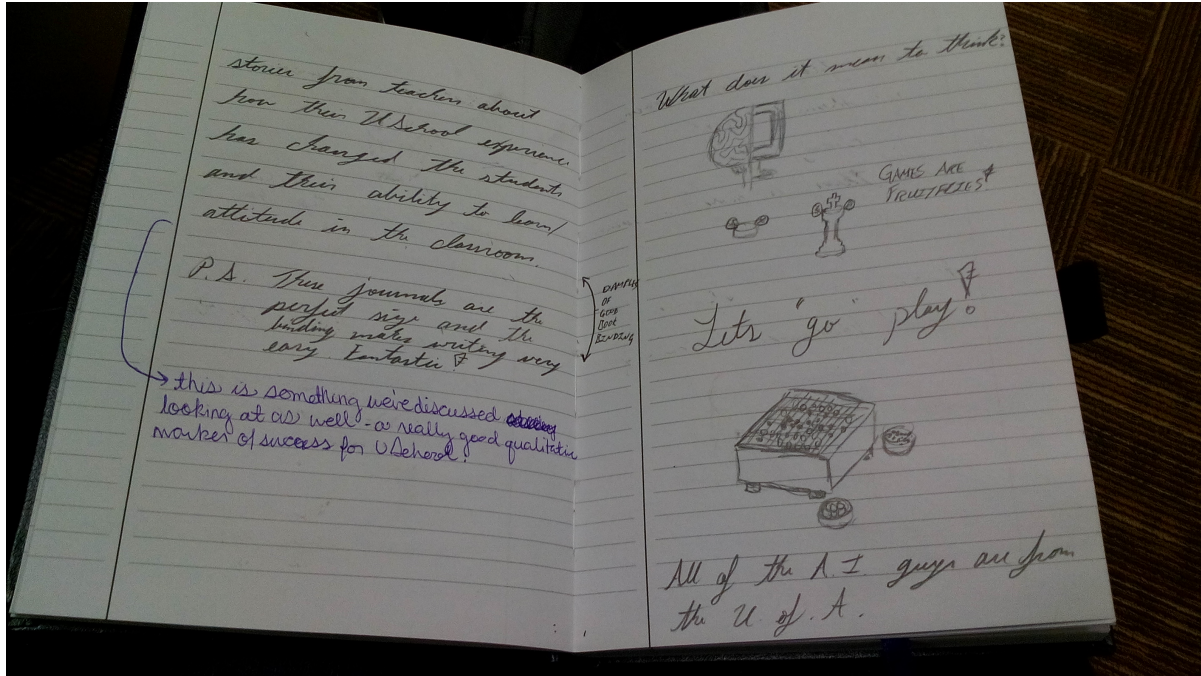 stories from teachers about
how their USchool experience
has changed the students
and their ability to learn/
attitude in the classroom.
P.S. These journals are the
perfect size and the
binding makes writing very
easy Fantastic!
EXAMPLES
OF
GOOD
BOOK
BINDING
this is something we've discussed
looking at as well - a really good qualitative
marker of success for USchool!
What does it mean to think?
GAMES ARE
FRUITFLIES!
Lets "go" play!
All of the A.I. guys are from
the U. of. A.